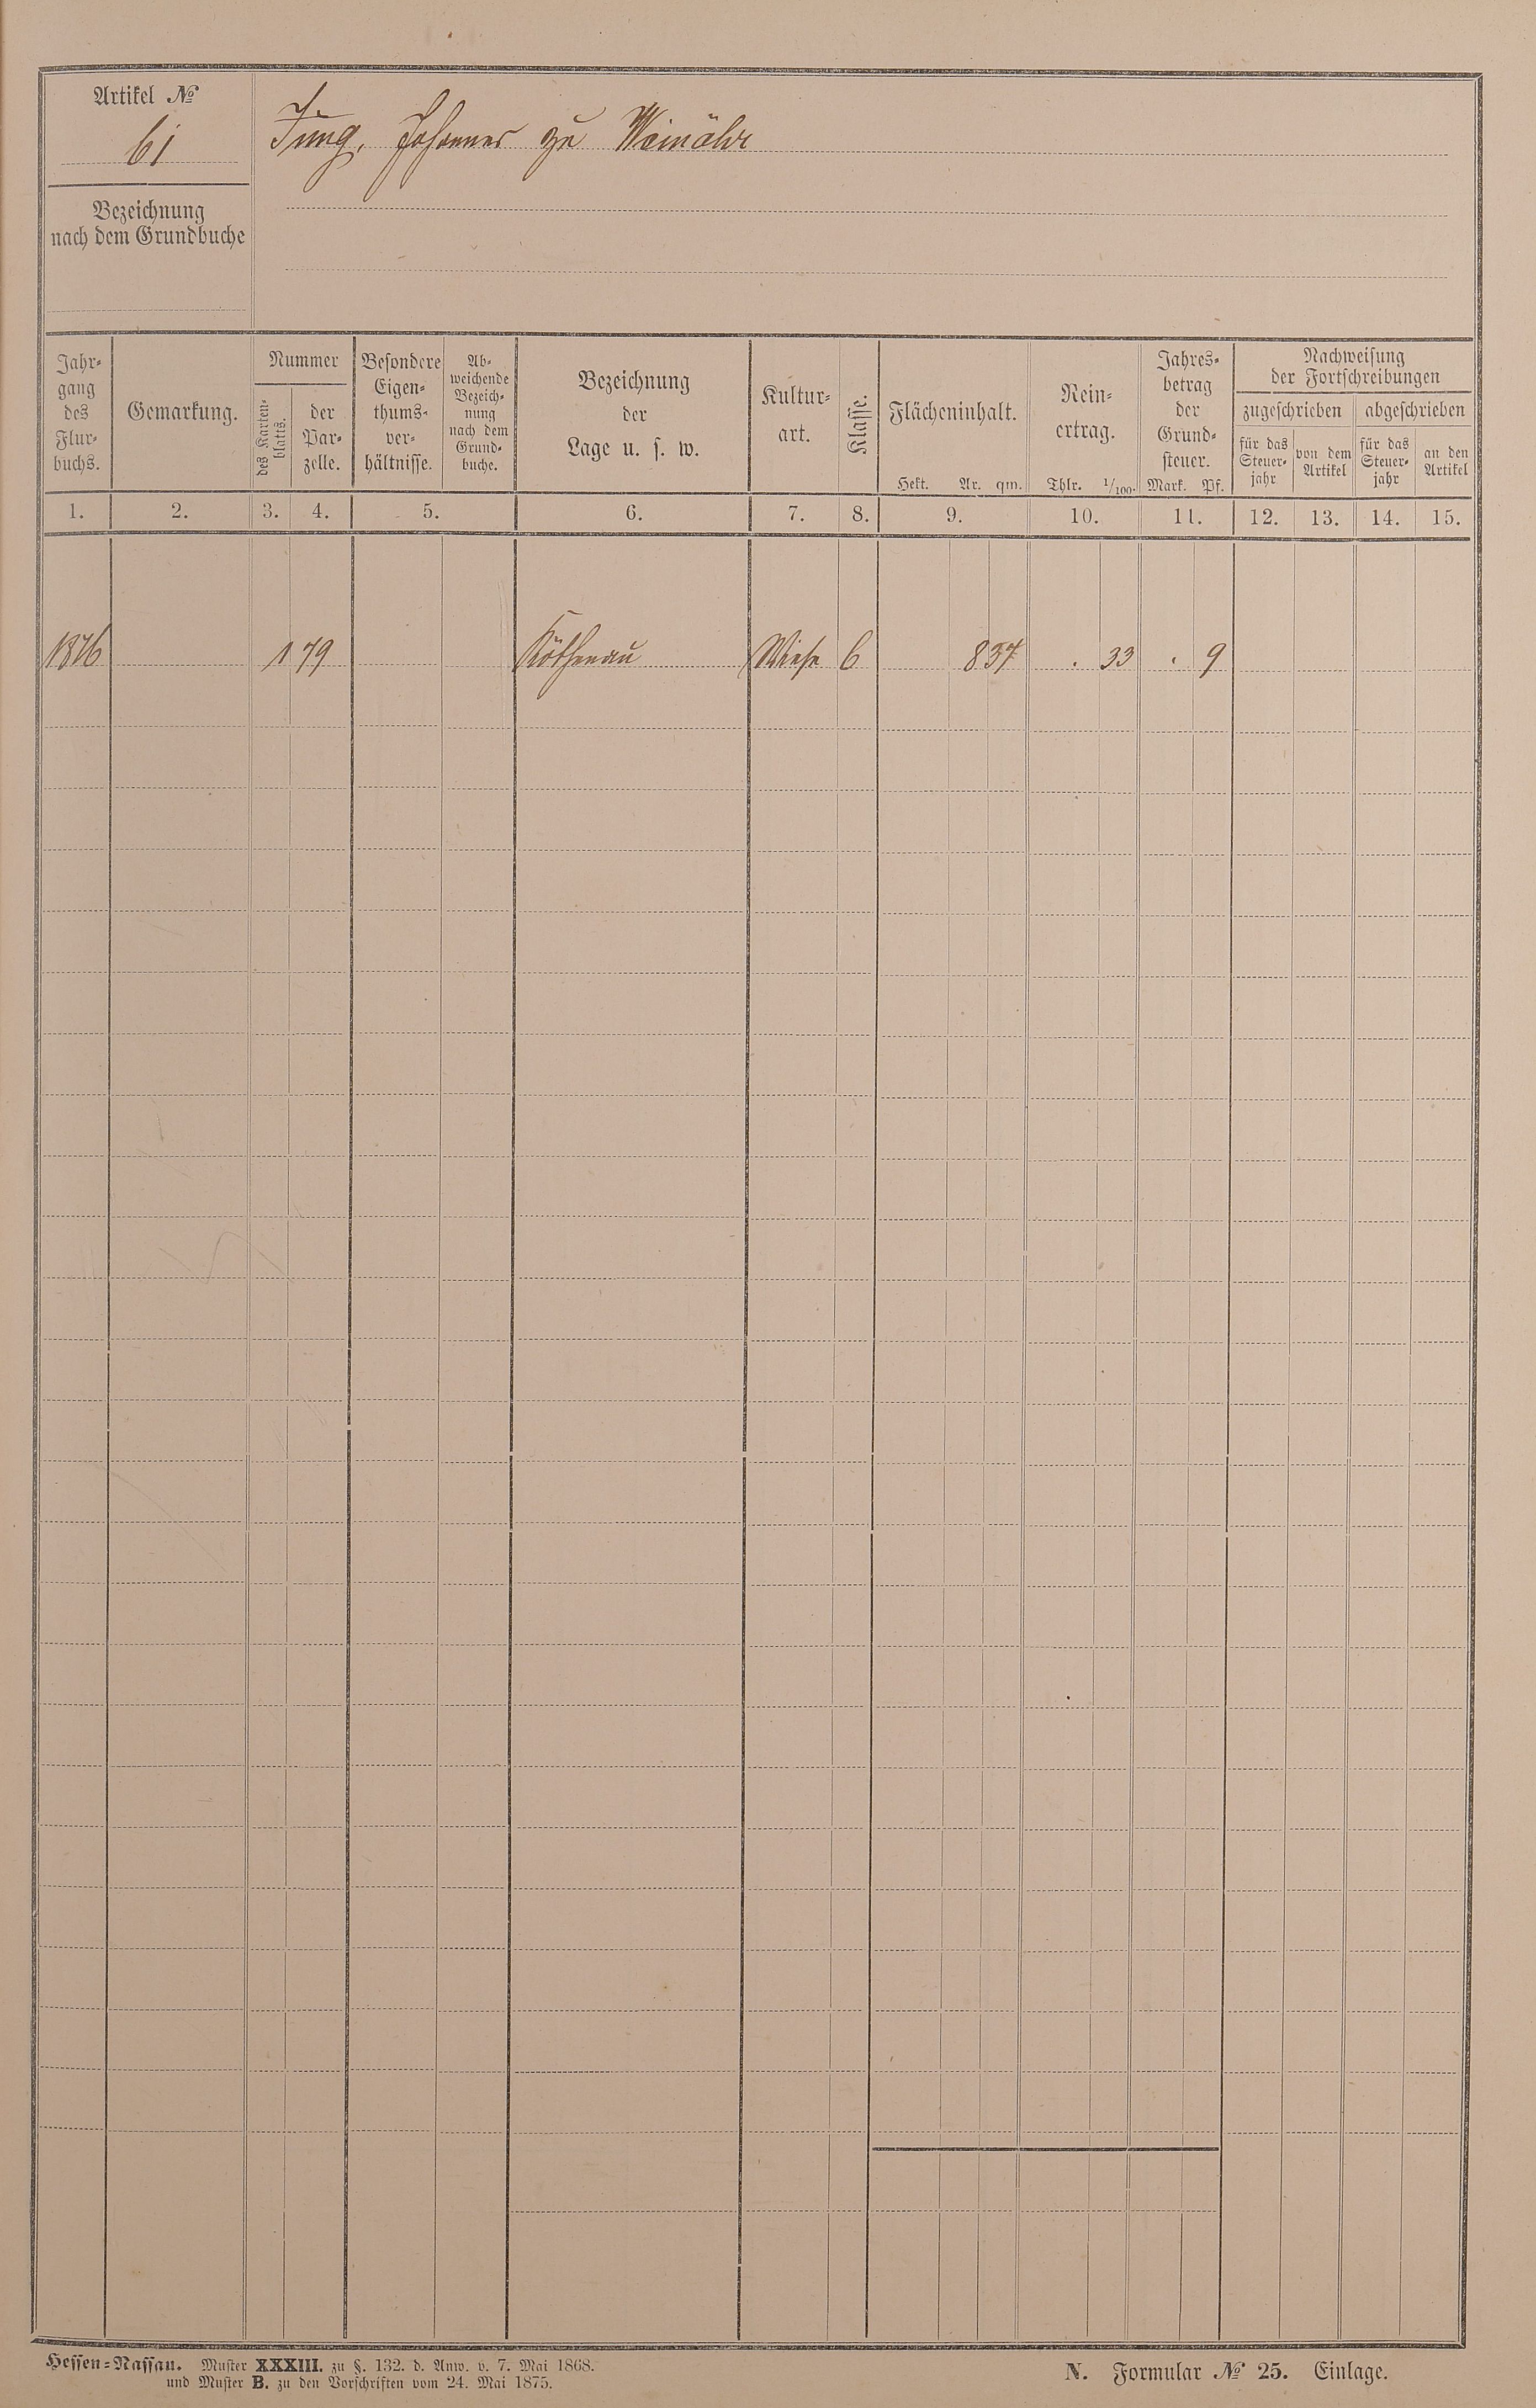 Artikel №
61
Jung, Johannes zu Weinähr
Bezeichnung
nach dem Grundbuche
Jahr-
gang
des
Flur-
buchs.
Gemarkung.
Nummer
des Karten-
blatts.
der
Par-
zelle.
Besondere
Eigen-
thums-
ver-
hältnisse.
Ab-
weichende
Bezeich-
nung
nach dem
Grund-
buche.
Bezeichnung
der
Lage u. s. w.
Kultur-
art.
Klasse.
Flächeninhalt.
Hekt. Ar. qm.
Rein-
ertrag.
Thlr. 1/100.
Jahres-
betrag
der
Grund-
steuer.
Mark. Pf.
Nachweisung
der Fortschreibungen
zugeschrieben abgeschrieben
für das
Steuer-
jahr
von dem
Artikel
für das
Steuer-
jahr
an den
Artikel
1. 2. 3. 4. 5. 6. 7. 8. 9. 10. 11. 12. 13. 14. 15.
1876 1 79 Röthenau Wiese 6 8 37 . 33 . 9
Hessen-Nassau. Muster XXXIII. zu §. 132. d. Anw. v. 7. Mai 1868.
und Muster B. zu den Vorschriften vom 24. Mai 1875.
N. Formular № 25. Einlage.